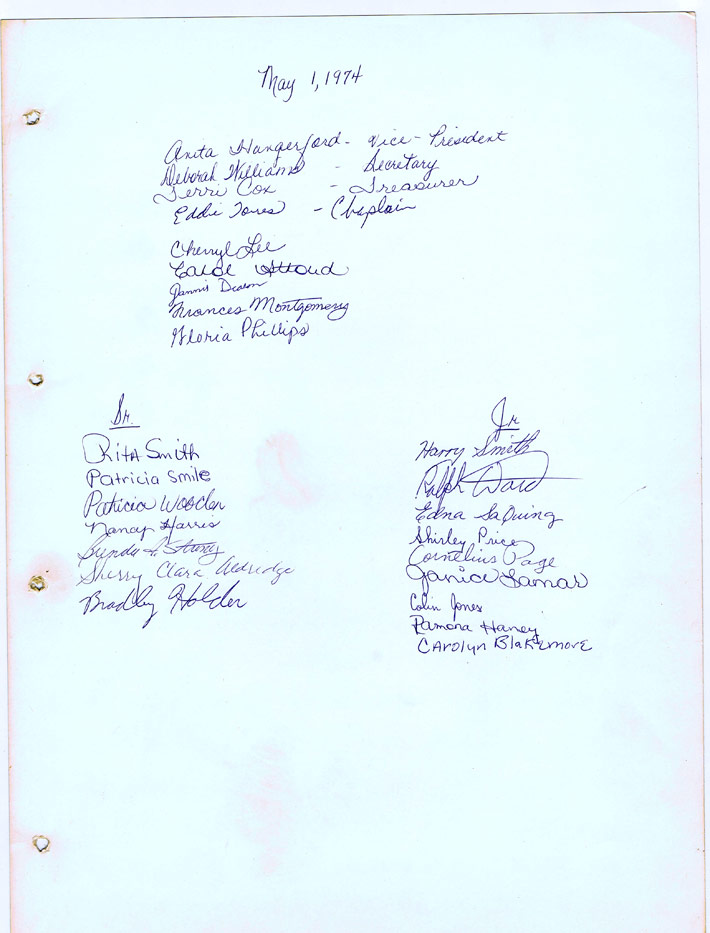 May 1, 1974
Anita Hungerford - Vice-President
Deborah Williams - Secretary
Terri Cox - Treasurer
Eddie Jones - Chaplain
Cherryl Lee
Carol
Frances Montgomery
Gloria Phillips
Sr.
Rita Smith
Patricia Smile
Patricia Wooden
Nancy Harris
Sherry Clara Aldridge
Bradley Holder
Jr.
Harry Smith
Ralph Ward
Edna LaQuing
Shirley Price
Cornelius Page
Janice Lamar
Colin Jones
Ramona Haney
Carolyn Blakemore